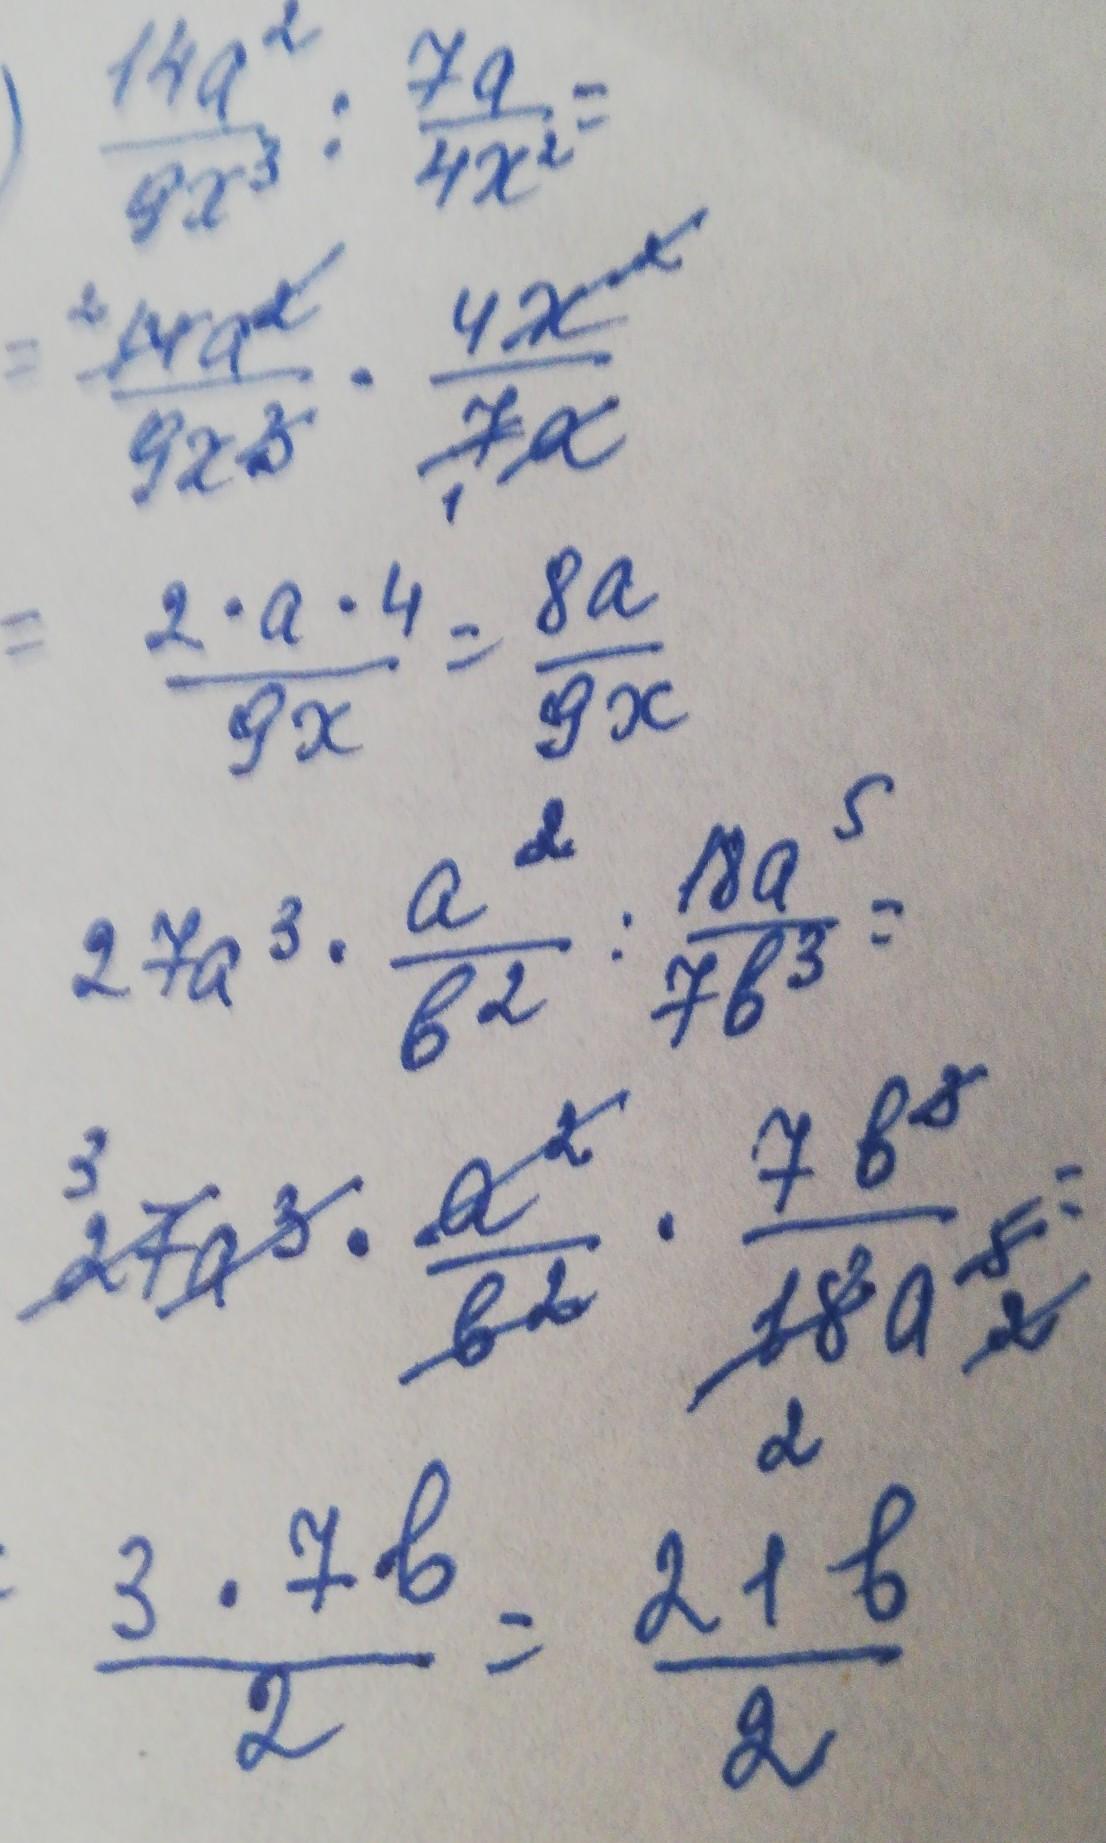 ) 14a²/9x³ : 7a/4x² =
= ² 14a²/9x³ · 4x²/7a ₁
= 2 · a · 4/9x = 8a/9x
27a³ · a²/в² : 18a⁵/7в³ =
³ 27a³ · a²/в² · 7в³/18a⁵ ₂ =
= 3 · 7в/2 = 21в/2